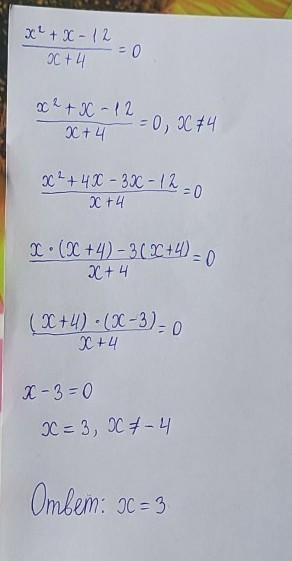 x² + x - 12 / x + 4 = 0
x² + x - 12 / x + 4 = 0, x ≠ 4
x² + 4x - 3x - 12 / x + 4 = 0
x · (x + 4) - 3(x + 4) / x + 4 = 0
(x + 4) · (x - 3) / x + 4 = 0
x - 3 = 0
x = 3, x ≠ - 4
Ответ: x = 3